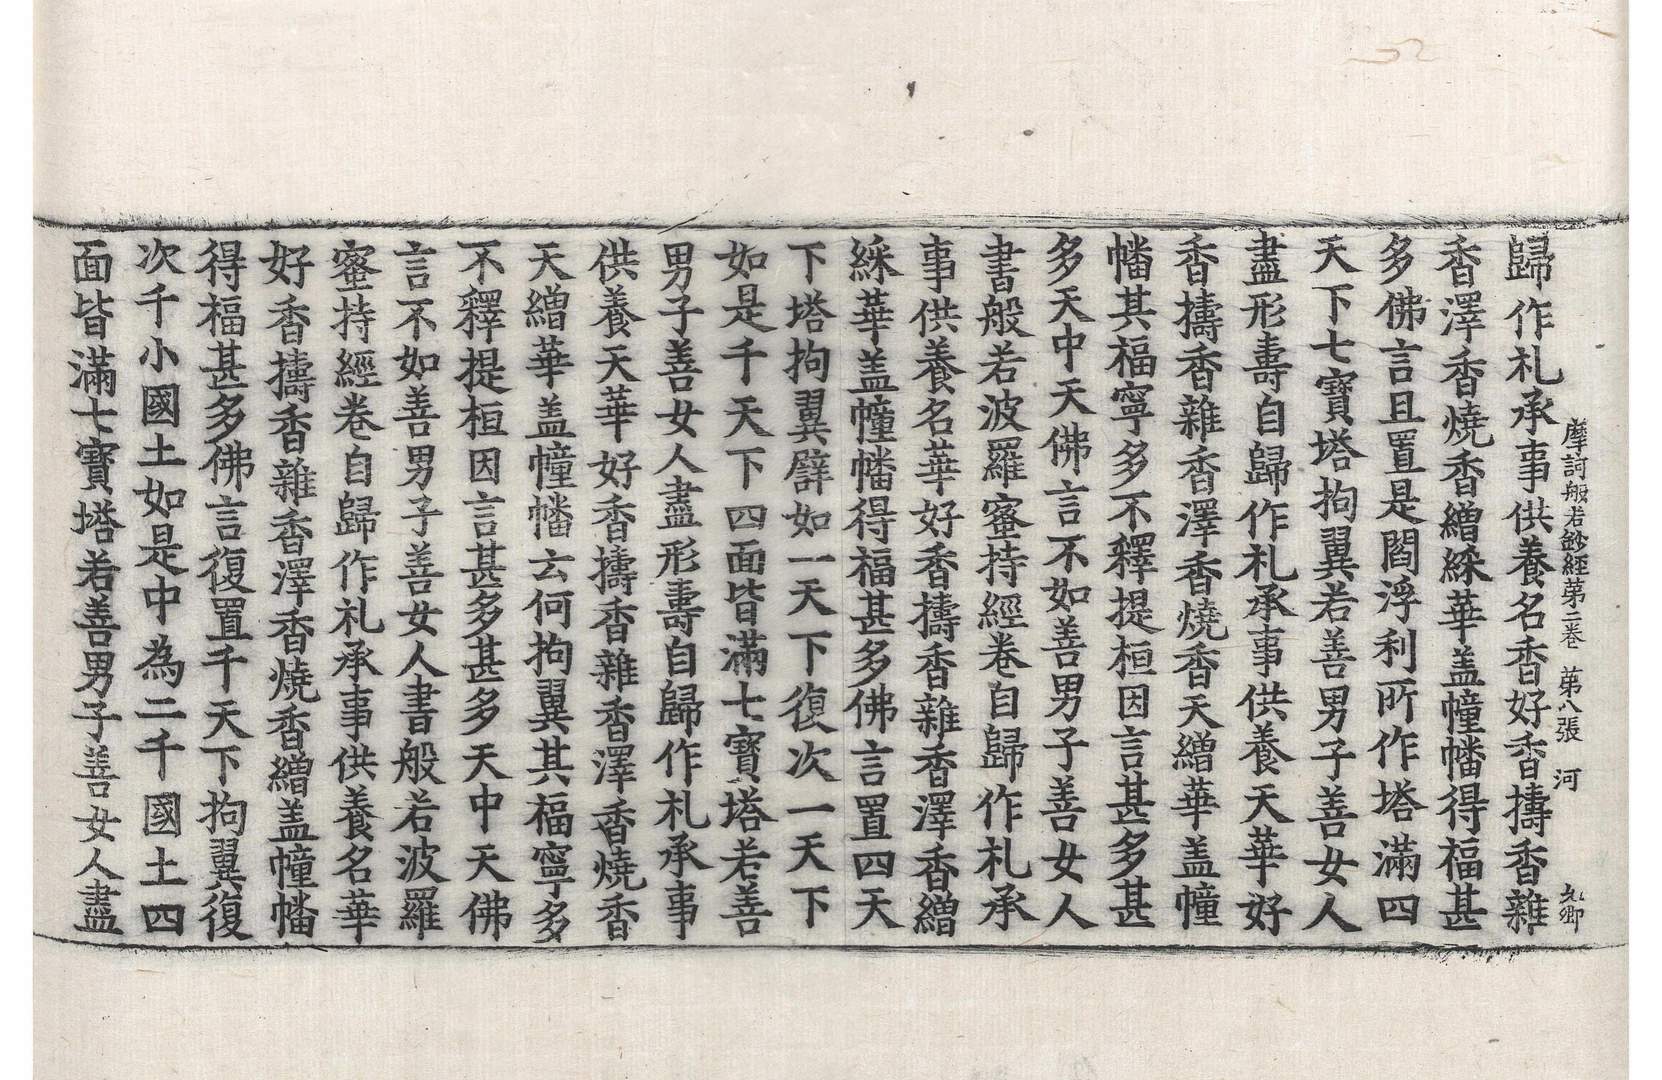 摩訶般若鈔經第二卷　第八張　河
歸作礼承事供養名香好香擣香雜
香澤香燒香繒綵華盖幢幡得福甚
多佛言且置是閻浮利所作塔滿四
天下七寶塔拘翼若善男子善女人
盡形壽自歸作礼承事供養天華好
香擣香雜香澤香燒香天繒華盖幢
幡其福寧多不釋提桓因言甚多甚
多天中天佛言不如善男子善女人
書般若波羅蜜持經卷自歸作礼承
事供養名華好香擣香雜香澤香繒
綵華盖幢幡得福甚多佛言置四天
下塔拘翼譬如一天下復次一天下
如是千天下四面皆滿七寶塔若善
男子善女人盡形壽自歸作礼承事
供養天華好香擣香雜香澤香燒香
天繒華盖幢幡云何拘翼其福寧多
不釋提桓因言甚多甚多天中天佛
言不如善男子善女人書般若波羅
蜜持經卷自歸作礼承事供養名華
好香擣香雜香澤香燒香繒盖幢幡
得福甚多佛言復置千天下拘翼復
次千小國土如是中為二千國土四
面皆滿七寶塔若善男子善女人盡